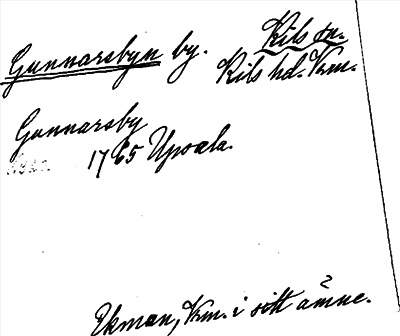 Gunnarsbyn by. Kils sn.
Kils hd. Vrm.
Gunnarsby
1765 Upsala.
Ekman, Vrm. i sitt ämne.